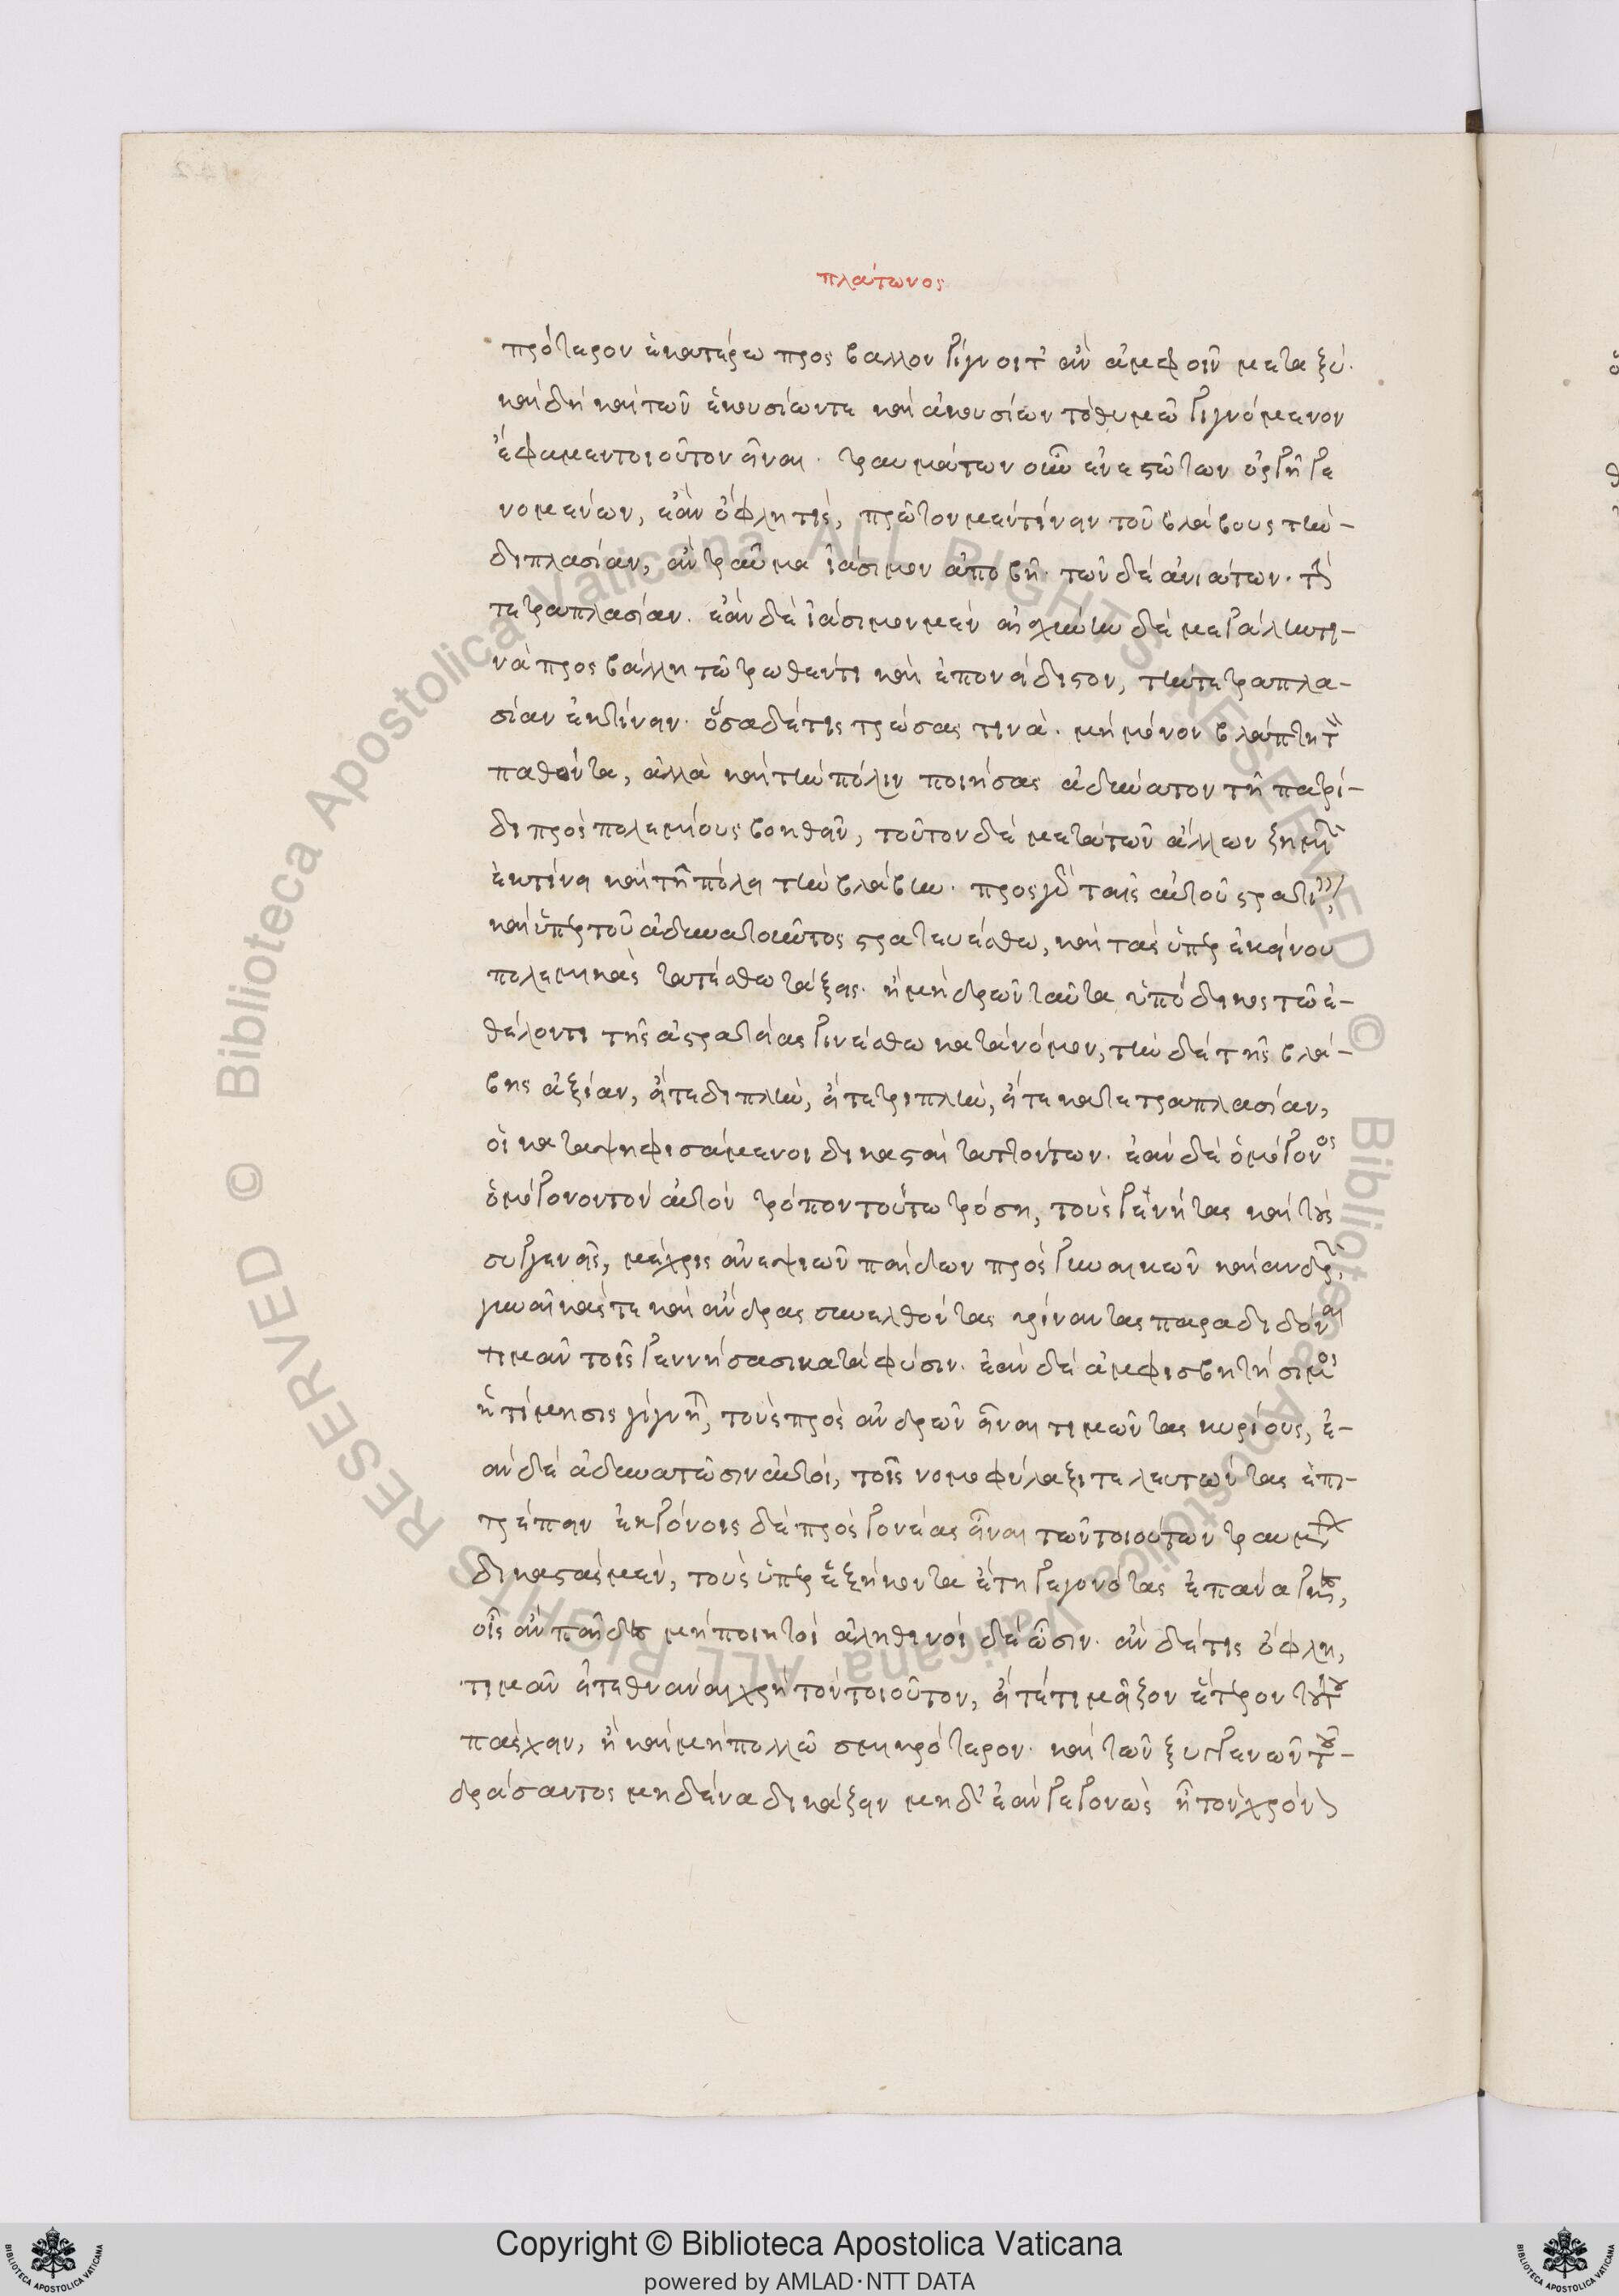 πλάτωνος
πρότερον ἑκατέρω προσβάλλον γίγνοιτ' ἂν ἀμφοῖν μεταξύ.
καὶ δὴ καὶ τῶν ἑκουσίων τε καὶ ἀκουσίων τὸ θυμῶ γιγνόμενον
ἔφαμεν τοιοῦτον εἶναι. τραυμάτων οὖν ἐνεστώτων ὀργῆ γε
νομένων, ἐὰν ὄφλη τις, πρῶτον μὲν τίνειν τοῦ βλάβους τὴν-
διπλασίαν, ἂν τραῦμα ἰάσιμον ἀποβῆ. τῶν δὲ ἀνιάτων. τὴν
τετραπλασίαν. ἐὰν δὲ ἰάσιμον μὲν αἰσχύνην δὲ μεγάλην τι-
νὰ προσβάλλη τῶ τρωθέντι καὶ ἐπονείδιστον, τὴν τετραπλα-
σίαν ἐκτίνειν. ὅσα δέ τις τρώσας τινὰ. μὴ μόνον βλάπτη τὸν
παθόντα, ἀλλὰ καὶ τὴν πόλιν ποιήσας ἀδύνατον τῆ πατρί-
δι πρὸς πολεμίους βοηθεῖν, τοῦτον δὲ μετὰ τῶν ἄλλων ζημιῶν
ἐκτίνει καὶ τῆ πόλει τὴν βλάβην. πρὸς γὰρ ταῖς αὐτοῦ στρατείαις
καὶ ὑπὲρ τοῦ ἀδυνατοῦντος στρατευέσθω, καὶ τὰς ὑπὲρ ἐκείνου
πολεμικὰς ταττέσθω τάξεις. ἢ μὴ δρῶν ταῦτα ὑπόδικος τῶ ἐ-
θέλοντι τῆς ἀστρατείας γινέσθω κατὰ νόμον, τὴν δὲ τῆς βλά-
βης ἀξίαν, εἴτε διπλῆν, εἴτε τριπλῆν, εἴτε κα τετραπλασίαν,
οἱ καταψηφισάμενοι δικασταὶ ταττόντων. ἐὰν δὲ ὁμόγονος
ὁμόγονον τὸν αὐτὸν τρόπον τούτω τρώση, τοὺς γεννήτας καὶ τοὺς
συγγενεῖς, μέχρις ἀνεψιῶν παίδων πρὸς γυναικῶν καὶ ἀνδρῶν,
γυναῖκάς τε καὶ ἄνδρας συνελθόντας κρίναντας παραδιδόναι
τιμᾶν τοῖς γεννήσασι κατὰ φύσιν. ἐὰν δὲ ἀμφισβητήσιμος
ἡ τίμησις γίγνηται, τοὺς πρὸς ἀνδρῶν εἶναι τιμῶντας κυρίους, ἐ-
ὰν δὲ ἀδυνατῶσιν αὐτοί, τοῖς νομοφύλαξι τελευτῶντας ἐπι-
τρέπειν ἐκγόνοις δὲ πρὸς γονέας εἶναι τῶν τοιούτων τραυμάτων
δικαστὰς μὲν, τοὺς ὑπὲρ ἑξήκοντα ἔτη γεγονότας ἐπάναγκες,
οἷς ἂν παῖδες μὴ ποιητοὶ ἀληθινοὶ δὲ ὦσιν. ἂν δέ τις ὄφλη,
τιμᾶν εἰ τεθνάναι χρὴ τὸν τοιοῦτον, εἴ τέ τι μεῖζον ἕτερον τούτου
πάσχειν, ἢ καὶ μὴ πολλῶ σμικρότερον. καὶ τῶν ξυγγενῶν τοῦ-
δράσαντος μηδένα δικάζειν μηδ' ἐὰν γεγονὼς ἦ τὸν χρόνον